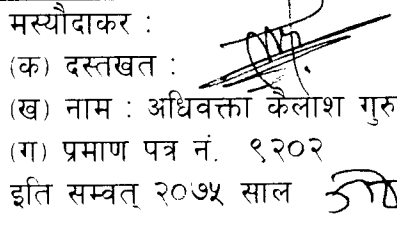 मस्यौदाकर :
(क) दस्तखत :
(ख) नाम : अधिवक्ता कैलाश गुरु
(ग) प्रमाण पत्र नं. ९२०२
इति सम्वत् २०७५ साल